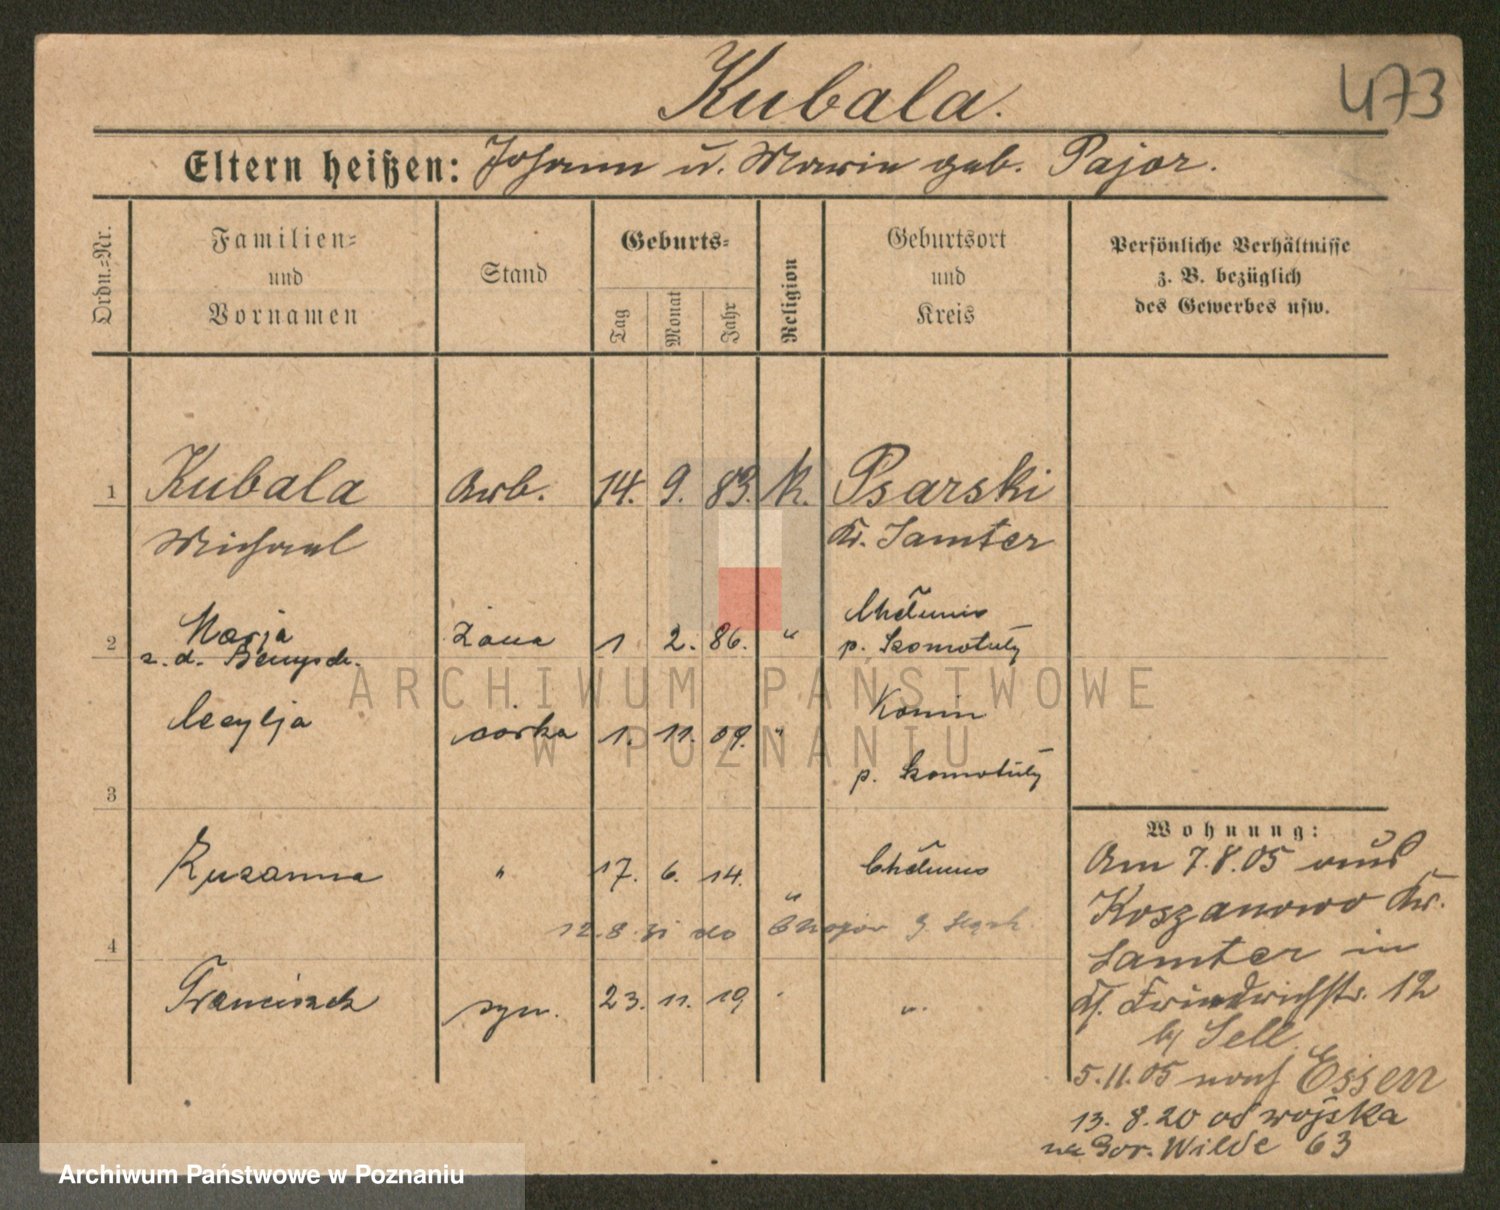 Kubala.
473
Eltern heißen: Johann u. Marie geb. Pajor.
Ordn.=Nr.
Familien=
und
Vornamen
Stand
Geburts=
Tag
Monat
Jahr
Religion
Geburtsort
und
Kreis
Persönliche Verhältnisse
z. B. bezüglich
des Gewerbes usw.
1 Kubala Arb. 14. 9. 83. k. Psarski
Michael Kr. Samter
2 Marja żona 1 2. 86. " 
z. d. p. Szamotuły
Cecylja córka 1. 11. 09. " Konin
p. Szamotuły
3
Zuzanna " 17. 6. 14. "
12.8. do
4
Franciszek syn. 23. 11. 19 "
Wohnung:
Am 7.8.05 aus
Koszanowo Kr.
Samter in
Friedrichstr. 12
b/ Sell
5.11.05 nach Essen
13. 8.20 od wojska
na Gór. Wilde 63
ARCHIWUM PAŃSTWOWE
W POZNANIU
Archiwum Państwowe w Poznaniu